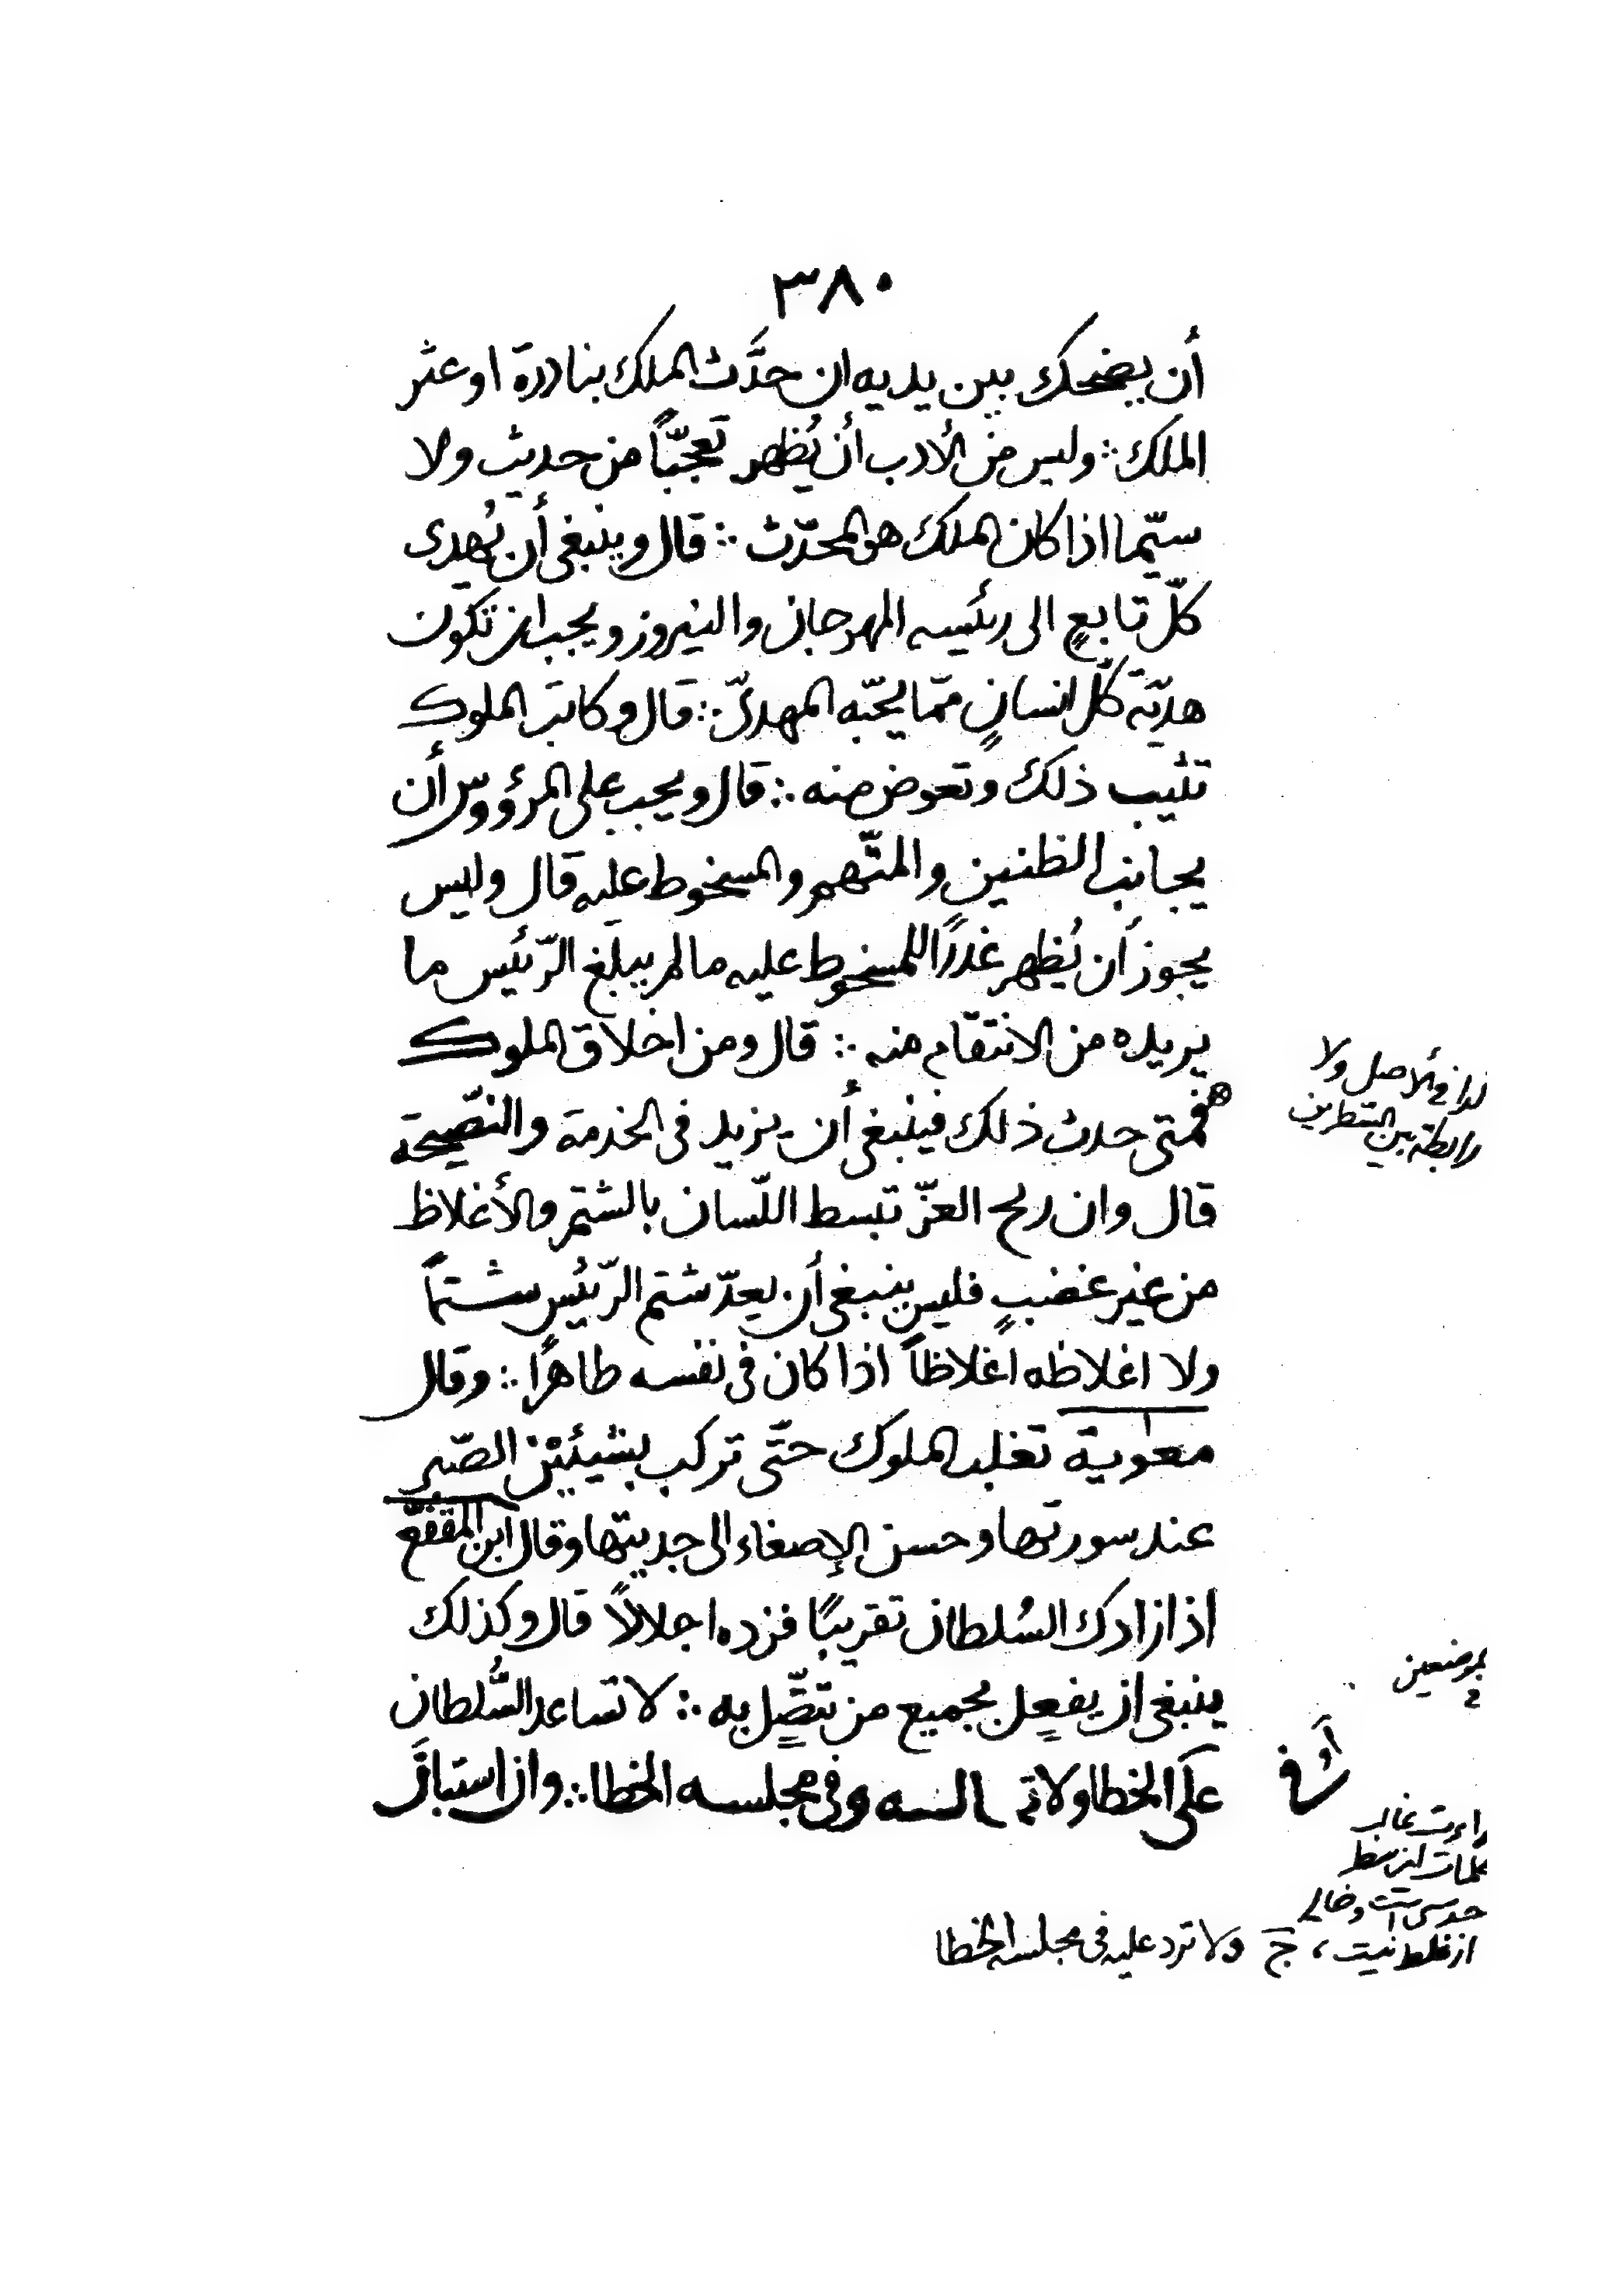 ٣٨٠
أن يضحك بين يديه ان حدَّث الملك بنادرة او عثر
الملك ∴ وليس من الأدب أن يُظهر تعجّباً من حديث ولا
سيّما اذا كان الملك هو المحدّث ∴ قال وينبغى أن يُهدى
كلّ تابعٍ الى رئيسه المهرجان والنيروز ويجب ان تكون
هديّة كلّ انسانٍ ممّا يحبّه المهدىّ ∴ قال وكانت الملوك
تثيب ذلك وتعوض منه ∴ قال ويجب على المرؤوس أن
يجانب الظنين والمتّهم والمسخوط عليه قال وليس
يجوز أن يُظهر غدرًا للمسخوط عليه ما لم يبلغ الرّئيس ما
يريده من الانتقام منه ∴ قال ومن اخلاق الملوك
فمتى حدث ذلك فينبغى أن يزيد فى الخدمة والنّصيحة
قال وان ريح العزّ تبسط اللّسان بالشتم والأغلاظ
من غير غضبٍ فليس ينبغى أن يعدّ شتم الرّئيس شتماً
ولا اغلاظه اغلاظاً اذا كان فى نفسه طاهرًا ∴ وقال
معوية تغلب الملوك حتّى تركب بشيئين الصّبر
عند سورتها وحسن الإصغاء الى حديثها وقال ابن المقفّع
اذا زادك السُلطان تقريبًا فزده اجلالاً قال وكذلك
ينبغى ان يفعل بجميع من تتّصل به ∴ لا تساعد السُّلطان
على الخطا ولا وفى مجلسه الخطا ∴ وان استبانَ
كذا فى الأصل ولا
رابطة بين السّطرين
بموضعين
أو
فى
غالب
كلمات
از غلط نيست، ج ولا ترد عليه فى مجلسه الخطا